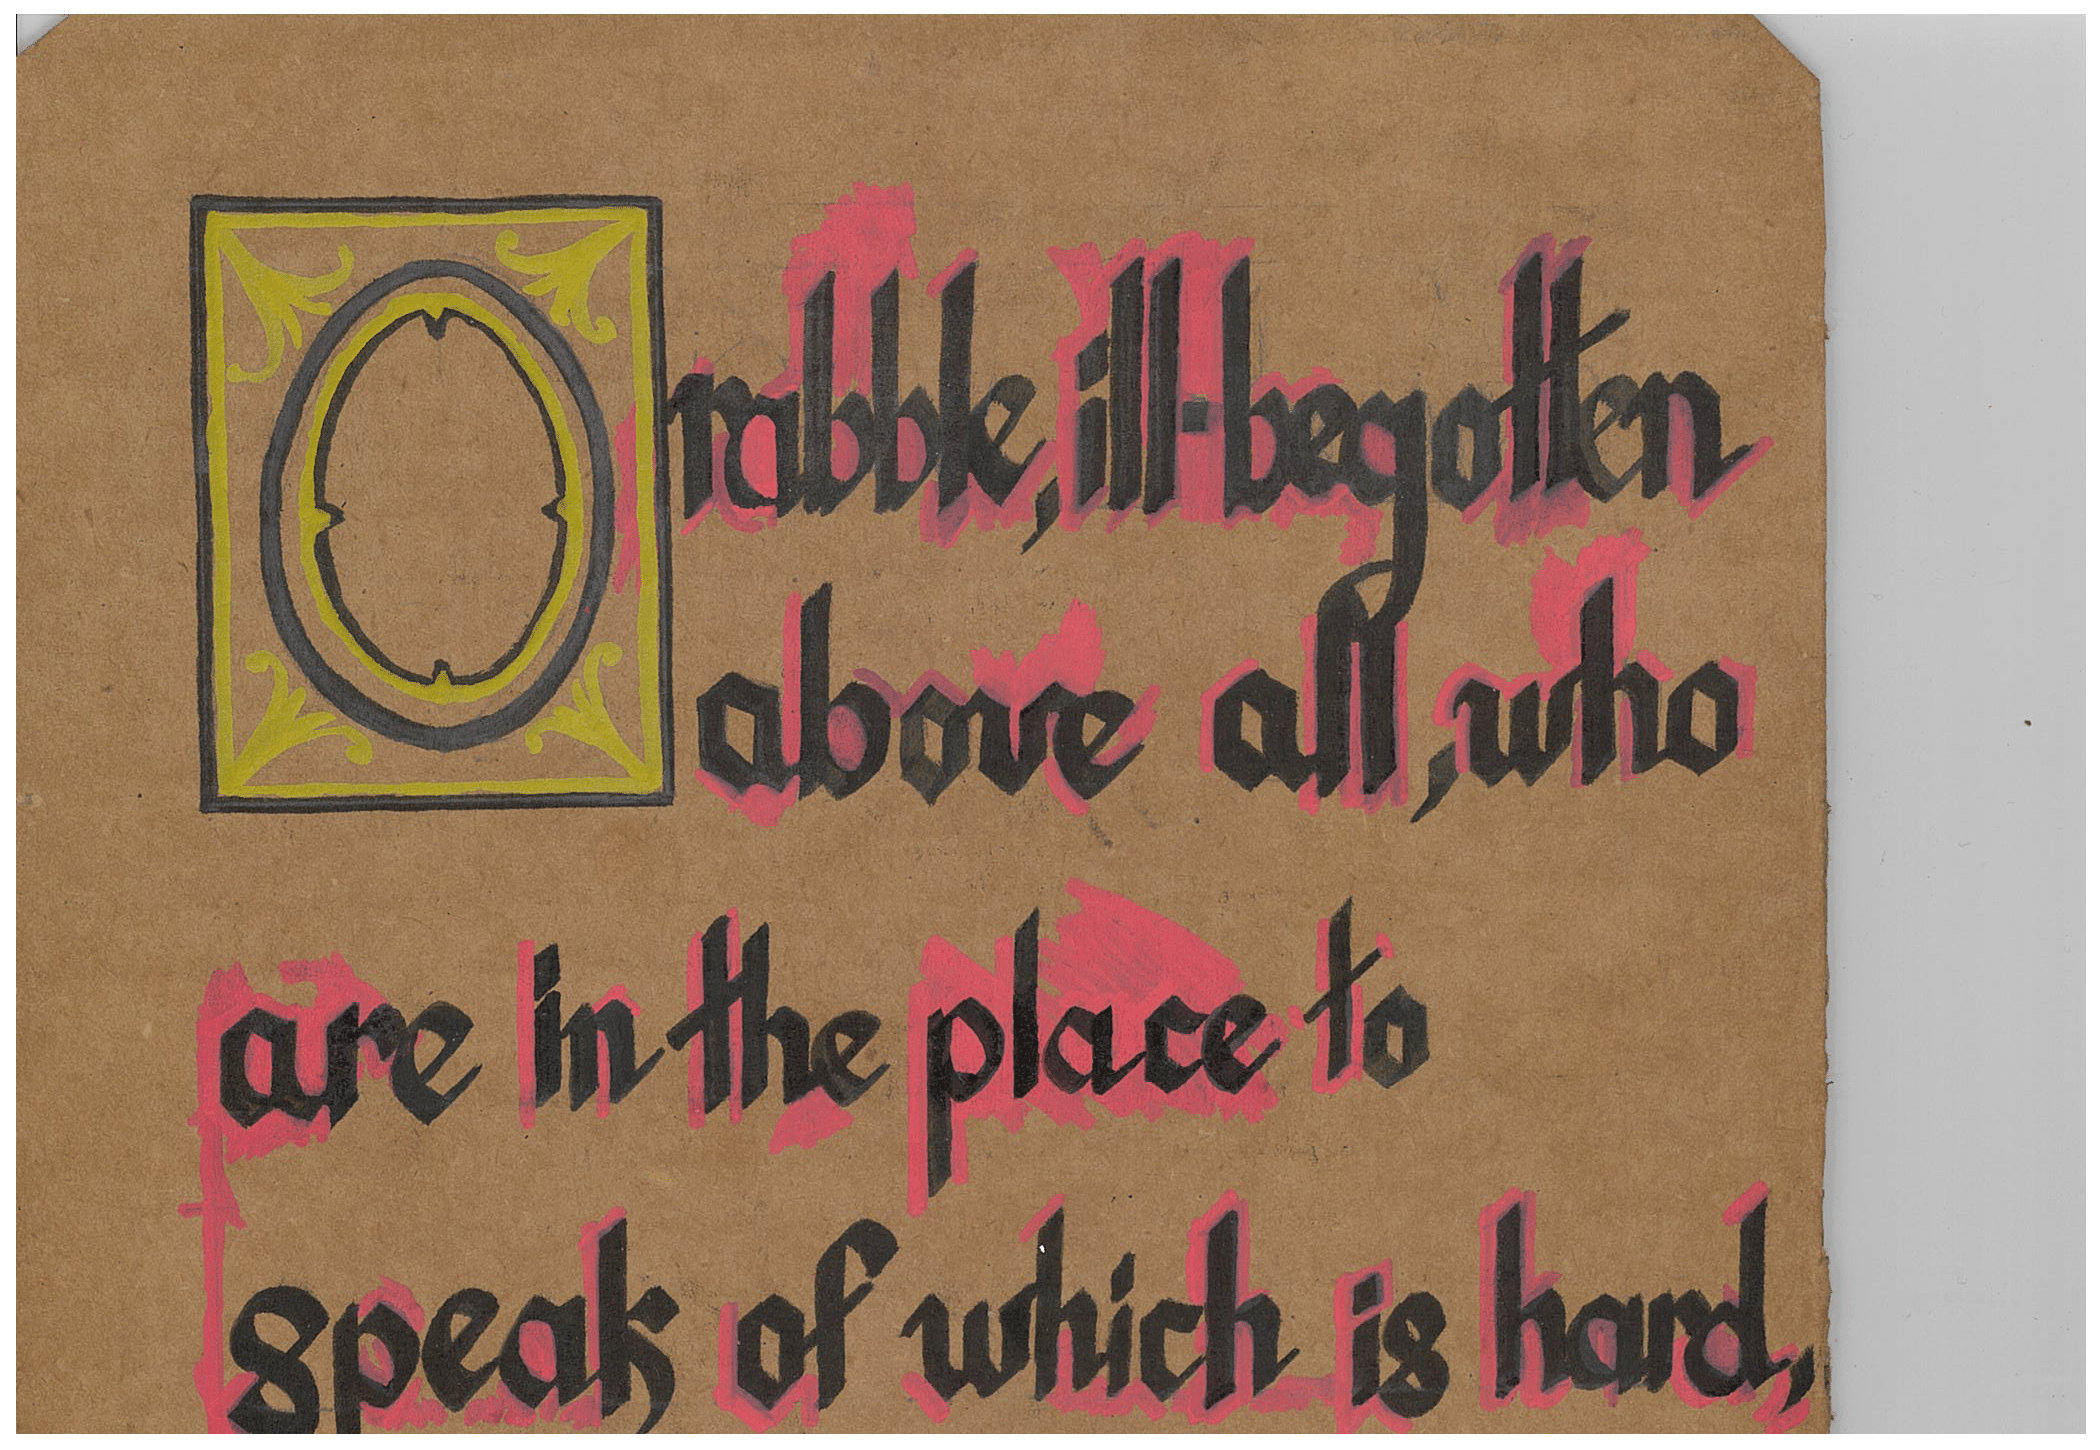 O rabble, ill-begotten
above all, who
are in the place to
speak of which is hard,